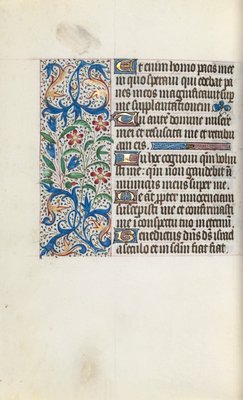 Et enim homo pacis mee
in quo speravi qui edebat pa
nes meos magnificauit sup
me supplantationem
Tu autē domine miserē
mei et resuscita me et retribu
am eis
In hoc cognovi qm̄ volui
sti me: qm̄ non gaudebit ī
inimicus meus super me
Me aūt ppter innocenciam
suscepisti me et confirmasti
me ī conspectu tuo in eternū
Benedictus dn̄s ds̄ israel
a seculo et in sclm̄ fiat fiat